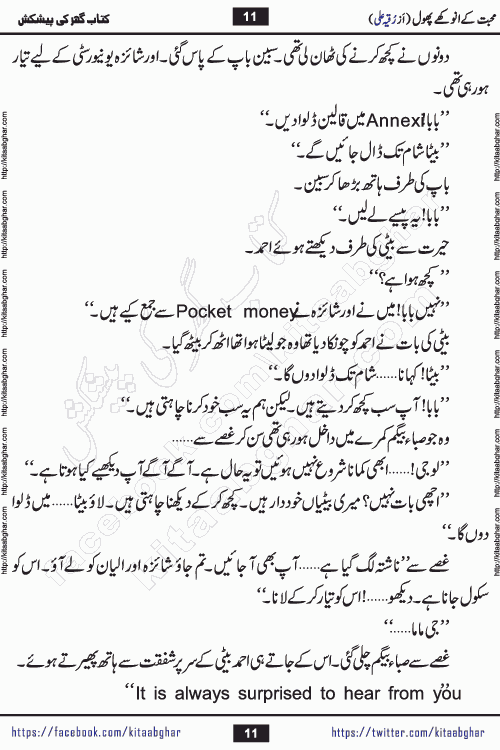 محبت کے انوکھے پھول (از رقیہ علی) 11 کتاب گھر کی پیشکش
دونوں نے کچھ کرنے کی ٹھان لی تھی۔ سبین باپ کے پاس گئی۔ اور شائزہ یونیورسٹی کے لیے تیار
ہو رہی تھی۔
’’بابا! Annexi میں قالین ڈلوا دیں۔‘‘
’’بیٹا شام تک ڈال جائیں گے۔‘‘
باپ کی طرف ہاتھ بڑھا کر سبین۔
’’بابا! یہ پیسے لے لیں۔‘‘
حیرت سے بیٹی کی طرف دیکھتے ہوئے احمد۔
’’کچھ ہوا ہے؟‘‘
’’نہیں بابا! میں نے اور شائزہ نے Pocket money سے جمع کیے ہیں۔‘‘
بیٹی کی بات نے احمد کو چونکا دیا تھا وہ جو لیٹا ہوا تھا اٹھ کر بیٹھ گیا۔
’’بیٹا! کہا نا......شام تک ڈلوا دوں گا۔‘‘
’’بابا! آپ سب کچھ کر دیتے ہیں۔ لیکن ہم یہ سب خود کرنا چاہتی ہیں۔‘‘
وہ جو صباء بیگم کمرے میں داخل ہو رہی تھی سن کر غصے سے......
’’لو جی!......ابھی کمانا شروع نہیں ہوئیں تو یہ حال ہے۔ آگے آگے آپ دیکھیے کیا ہوتا ہے۔‘‘
’’اچھی بات نہیں؟ میری بیٹیاں خوددار ہیں۔ کچھ کر کے دیکھنا چاہتی ہیں۔ لاؤ بیٹا......میں ڈلوا
دوں گا۔‘‘
غصے سے ’’ناشتہ لگ گیا ہے......آپ بھی آ جائیں۔ تم جاؤ شائزہ اور الیان کو لے آؤ۔ اس کو
سکول جانا ہے۔ دیکھو......!اس کو تیار کر کے لانا۔‘‘
’’جی ماما......‘‘
غصے سے صباء بیگم چلی گئی۔ اس کے جاتے ہی احمد بیٹی کے سر پر شفقت سے ہاتھ پھیرتے ہوئے۔
‘‘It is always surprised to hear from you’’
https://facebook.com/kitaabghar 11 https://twitter.com/kitaabghar
http://kitaabghar.com http://kitaabghar.com http://kitaabghar.com http://kitaabghar.com http://kitaabghar.com http://kitaabghar.com
کتاب گھر کی پیشکش
kitaabghar.com
facebook.com/kitaabghar